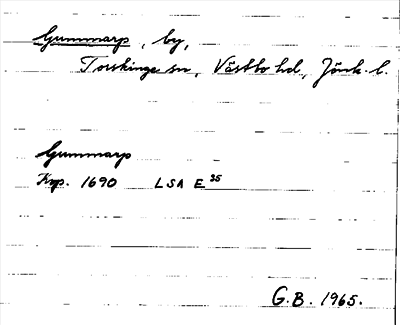 Gummarp, by,
Torskinge sn, Västbo hd, Jönk. l.
Gummarp
Krp. 1690 LSA E 35
G.B. 1965.